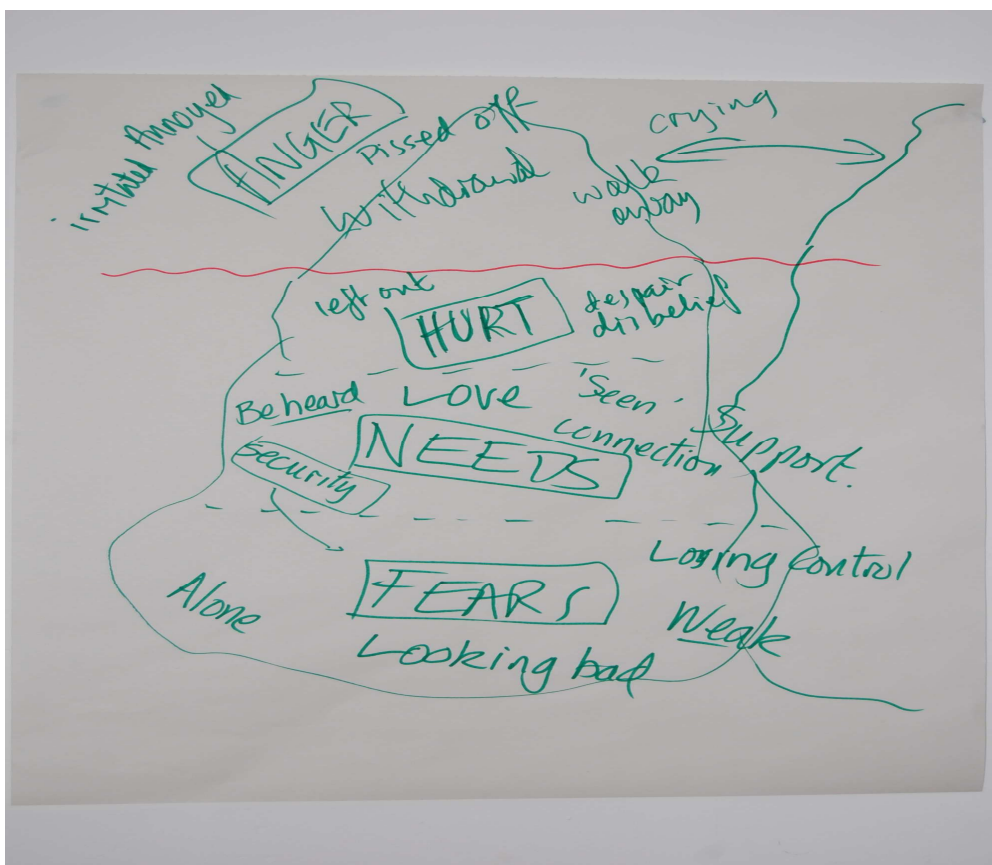 irritated Annoyed
ANGER
Pissed off
crying
Withdrawal
walk
away
left out
HURT
despair
disbelief
Be heard
Love
'Seen'
connection
Support.
NEEDS
security
Losing Control
Alone
FEARS
Weak
Looking bad